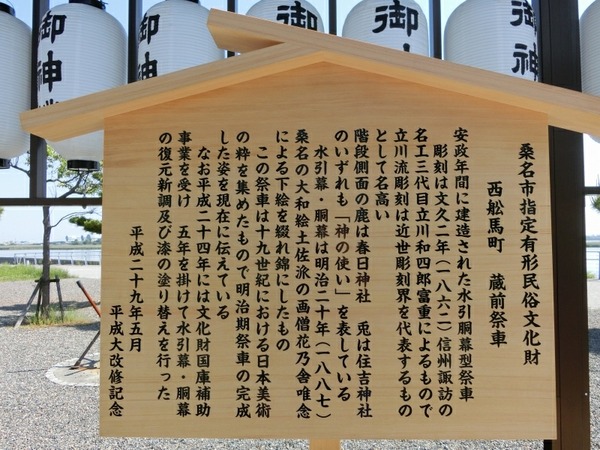 桑名市指定有形民俗文化財
西舩馬町　蔵前祭車
安政年間に建造された水引胴幕型祭車
彫刻は文久二年(一八六二)信州諏訪の
名工三代目立川和四郎富重によるもので
立川流彫刻は近世彫刻界を代表するもの
として名高い
階段側面の鹿は春日神社　兎は住吉神社
のいずれも「神の使い」を表している
水引幕・胴幕は明治二十年(一八八七)
桑名の大和絵土佐派の画僧花乃舎唯念
による下絵を綴れ錦にしたもの
この祭車は十九世紀における日本美術
の粋を集めたもので明治期祭車の完成
した姿を現在に伝えている
なお平成二十四年には文化財国庫補助
事業を受け　五年を掛けて水引幕・胴幕
の復元新調及び漆の塗り替えを行った
平成二十九年五月
平成大改修記念
御神
御神
御
御
御神